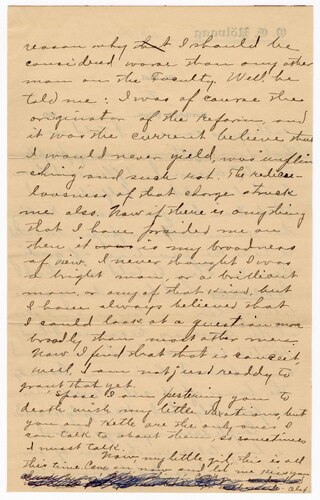 reason why that I should be
considered worse than any other
man on the Faculty. Well he
told me: I was of course the
originator of the Reform, and
it was the current believe that
I would never yield, was "unflin-
ching" and such rot. The redicu-
lousness of that charge struck
me also. Now if there is anything
that I have praided me on
then it was is my broadness
of view. I never thought I was
a bright man, or a brilliant
man, or any of that kind, but
I have always believed that
I could look at a question more
broadly than most other men.
Now I find that that is conceit,
Well, I am not just readdy to
grant that yet.
'Spose I am pestering you to
death with my little vexations, but
you and Kettle are the only ones I
can talk to about them, so sometimes
I must talk.
Now my little girl this is all
this time. Come on now and let me kiss you